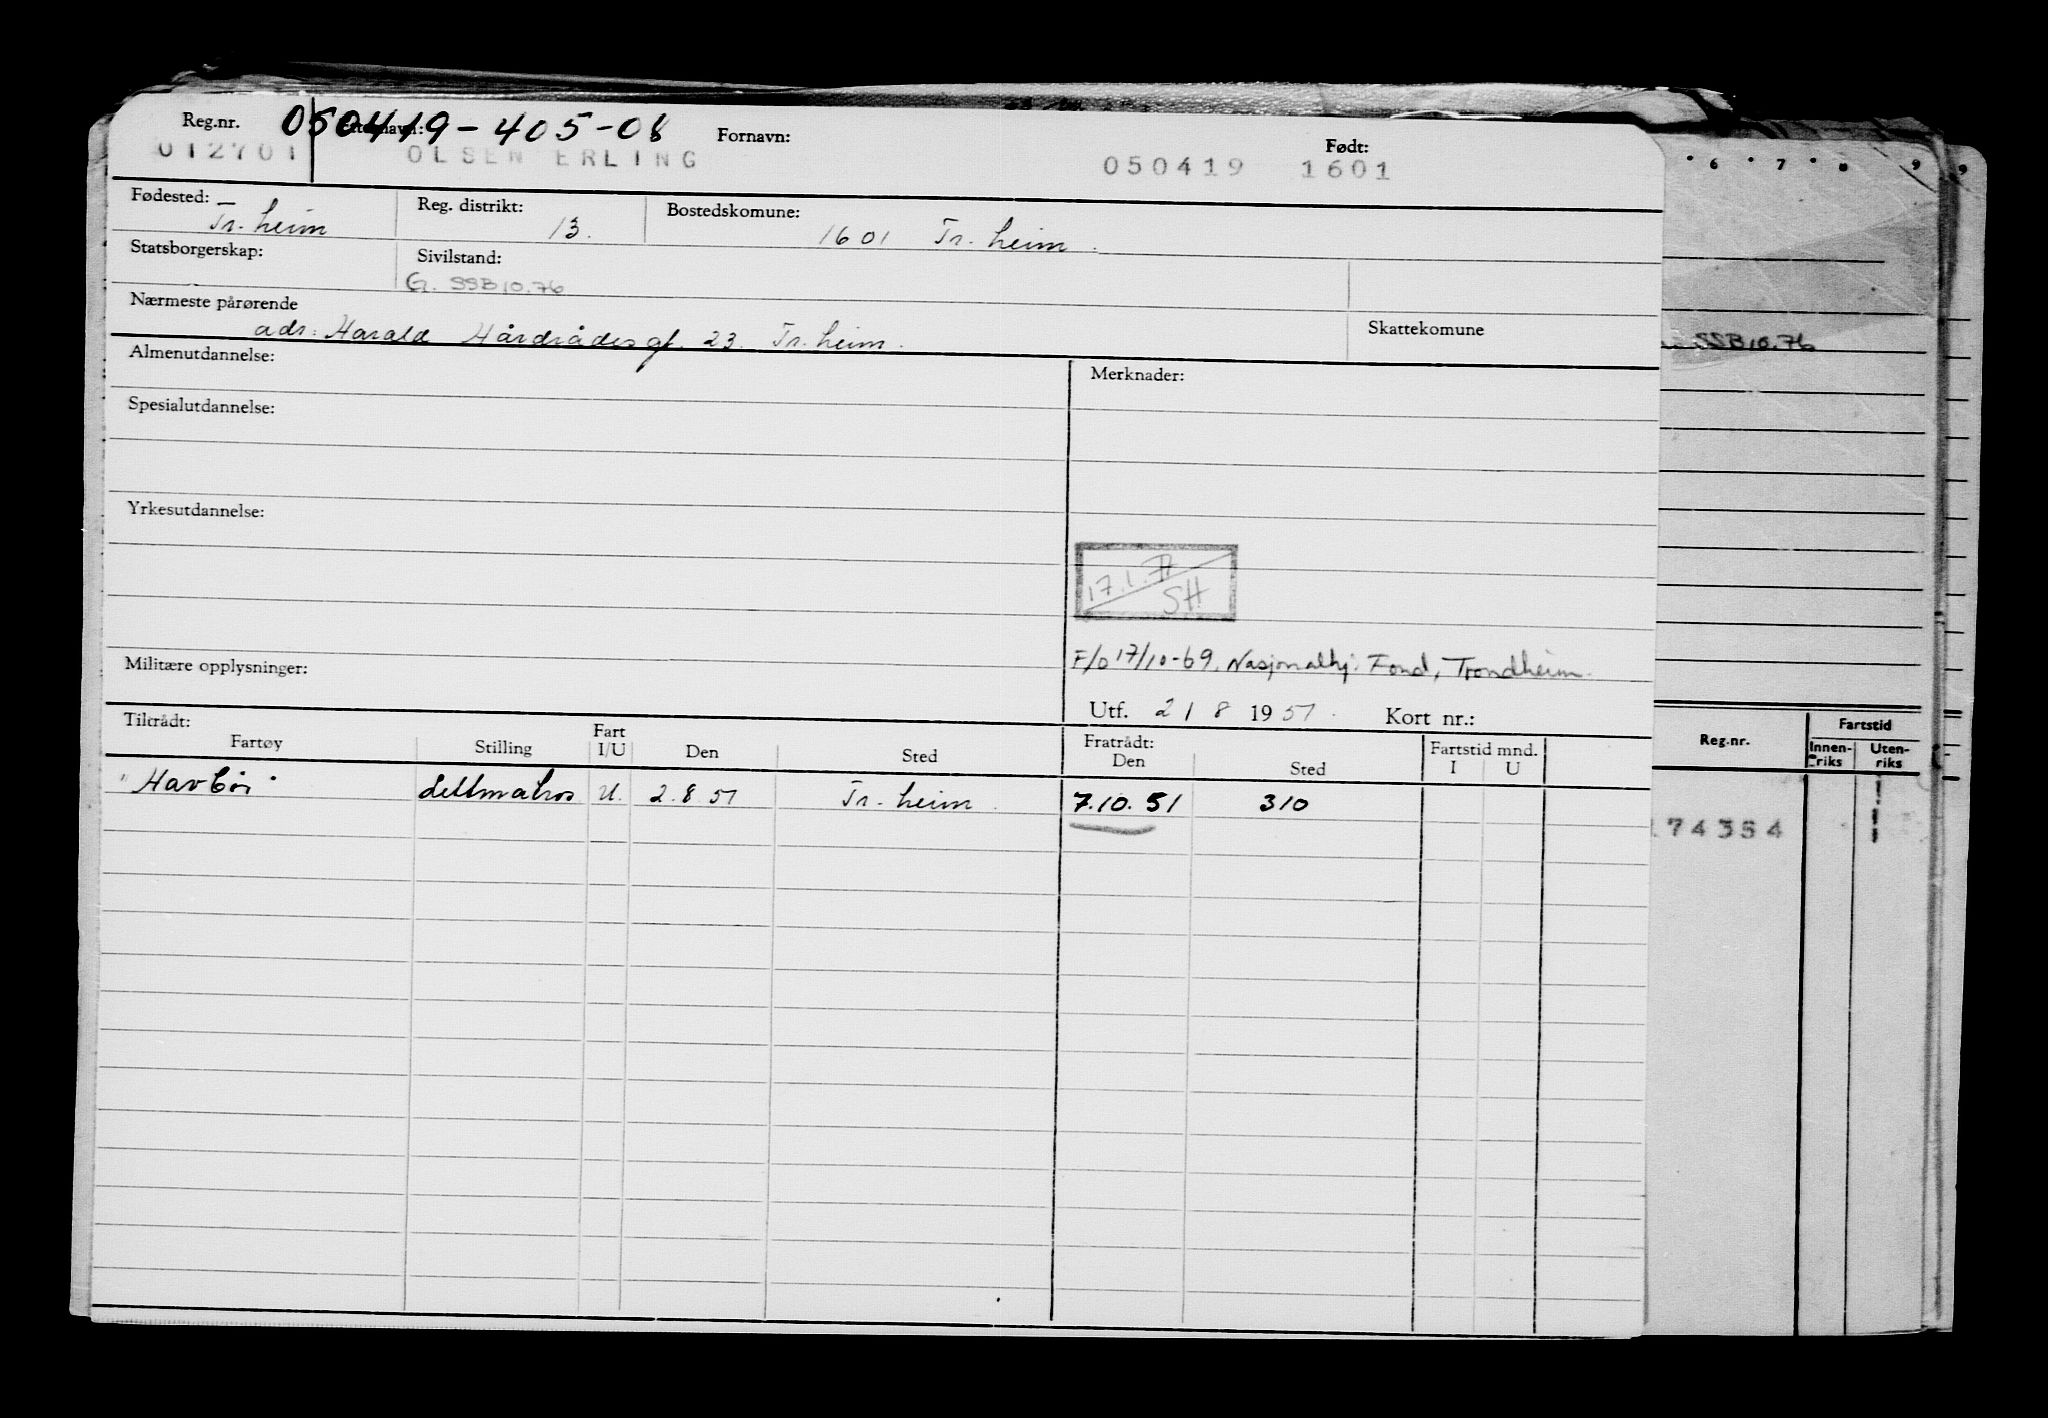 Reg.nr. 050419-405-08 Fornavn: Født:
012701 OLSEN ERLING 050419 1601
Fødested: Reg. distrikt: Bostedskomune:
Tr. heim 13. 1601 Tr. heim.
Statsborgerskap: Sivilstand:
G. SSB 10.76
Nærmeste pårørende
adr: Harald Hårdrådesgt. 23. Tr. heim. Skattekomune
Almenutdannelse: Merknader:
Spesialutdannelse:
Yrkesutdannelse:
17.1.77
SH
Militære opplysninger: F/o 17/10-69, Nasjonalhj. Fond, Trondheim.
Utf. 21 8 1951. Kort nr.:
Tiltrådt: Fart Fratrådt: Fartstid mnd.
Fartøy Stilling I/U Den Sted Den Sted I U
"Havbör" lettmatros U. 2.8 51 Tr. heim. 7.10.51 310
6 7 8 9 9
SSB 10.76
Reg.nr. Fartstid
Innen-riks Uten-riks
174354